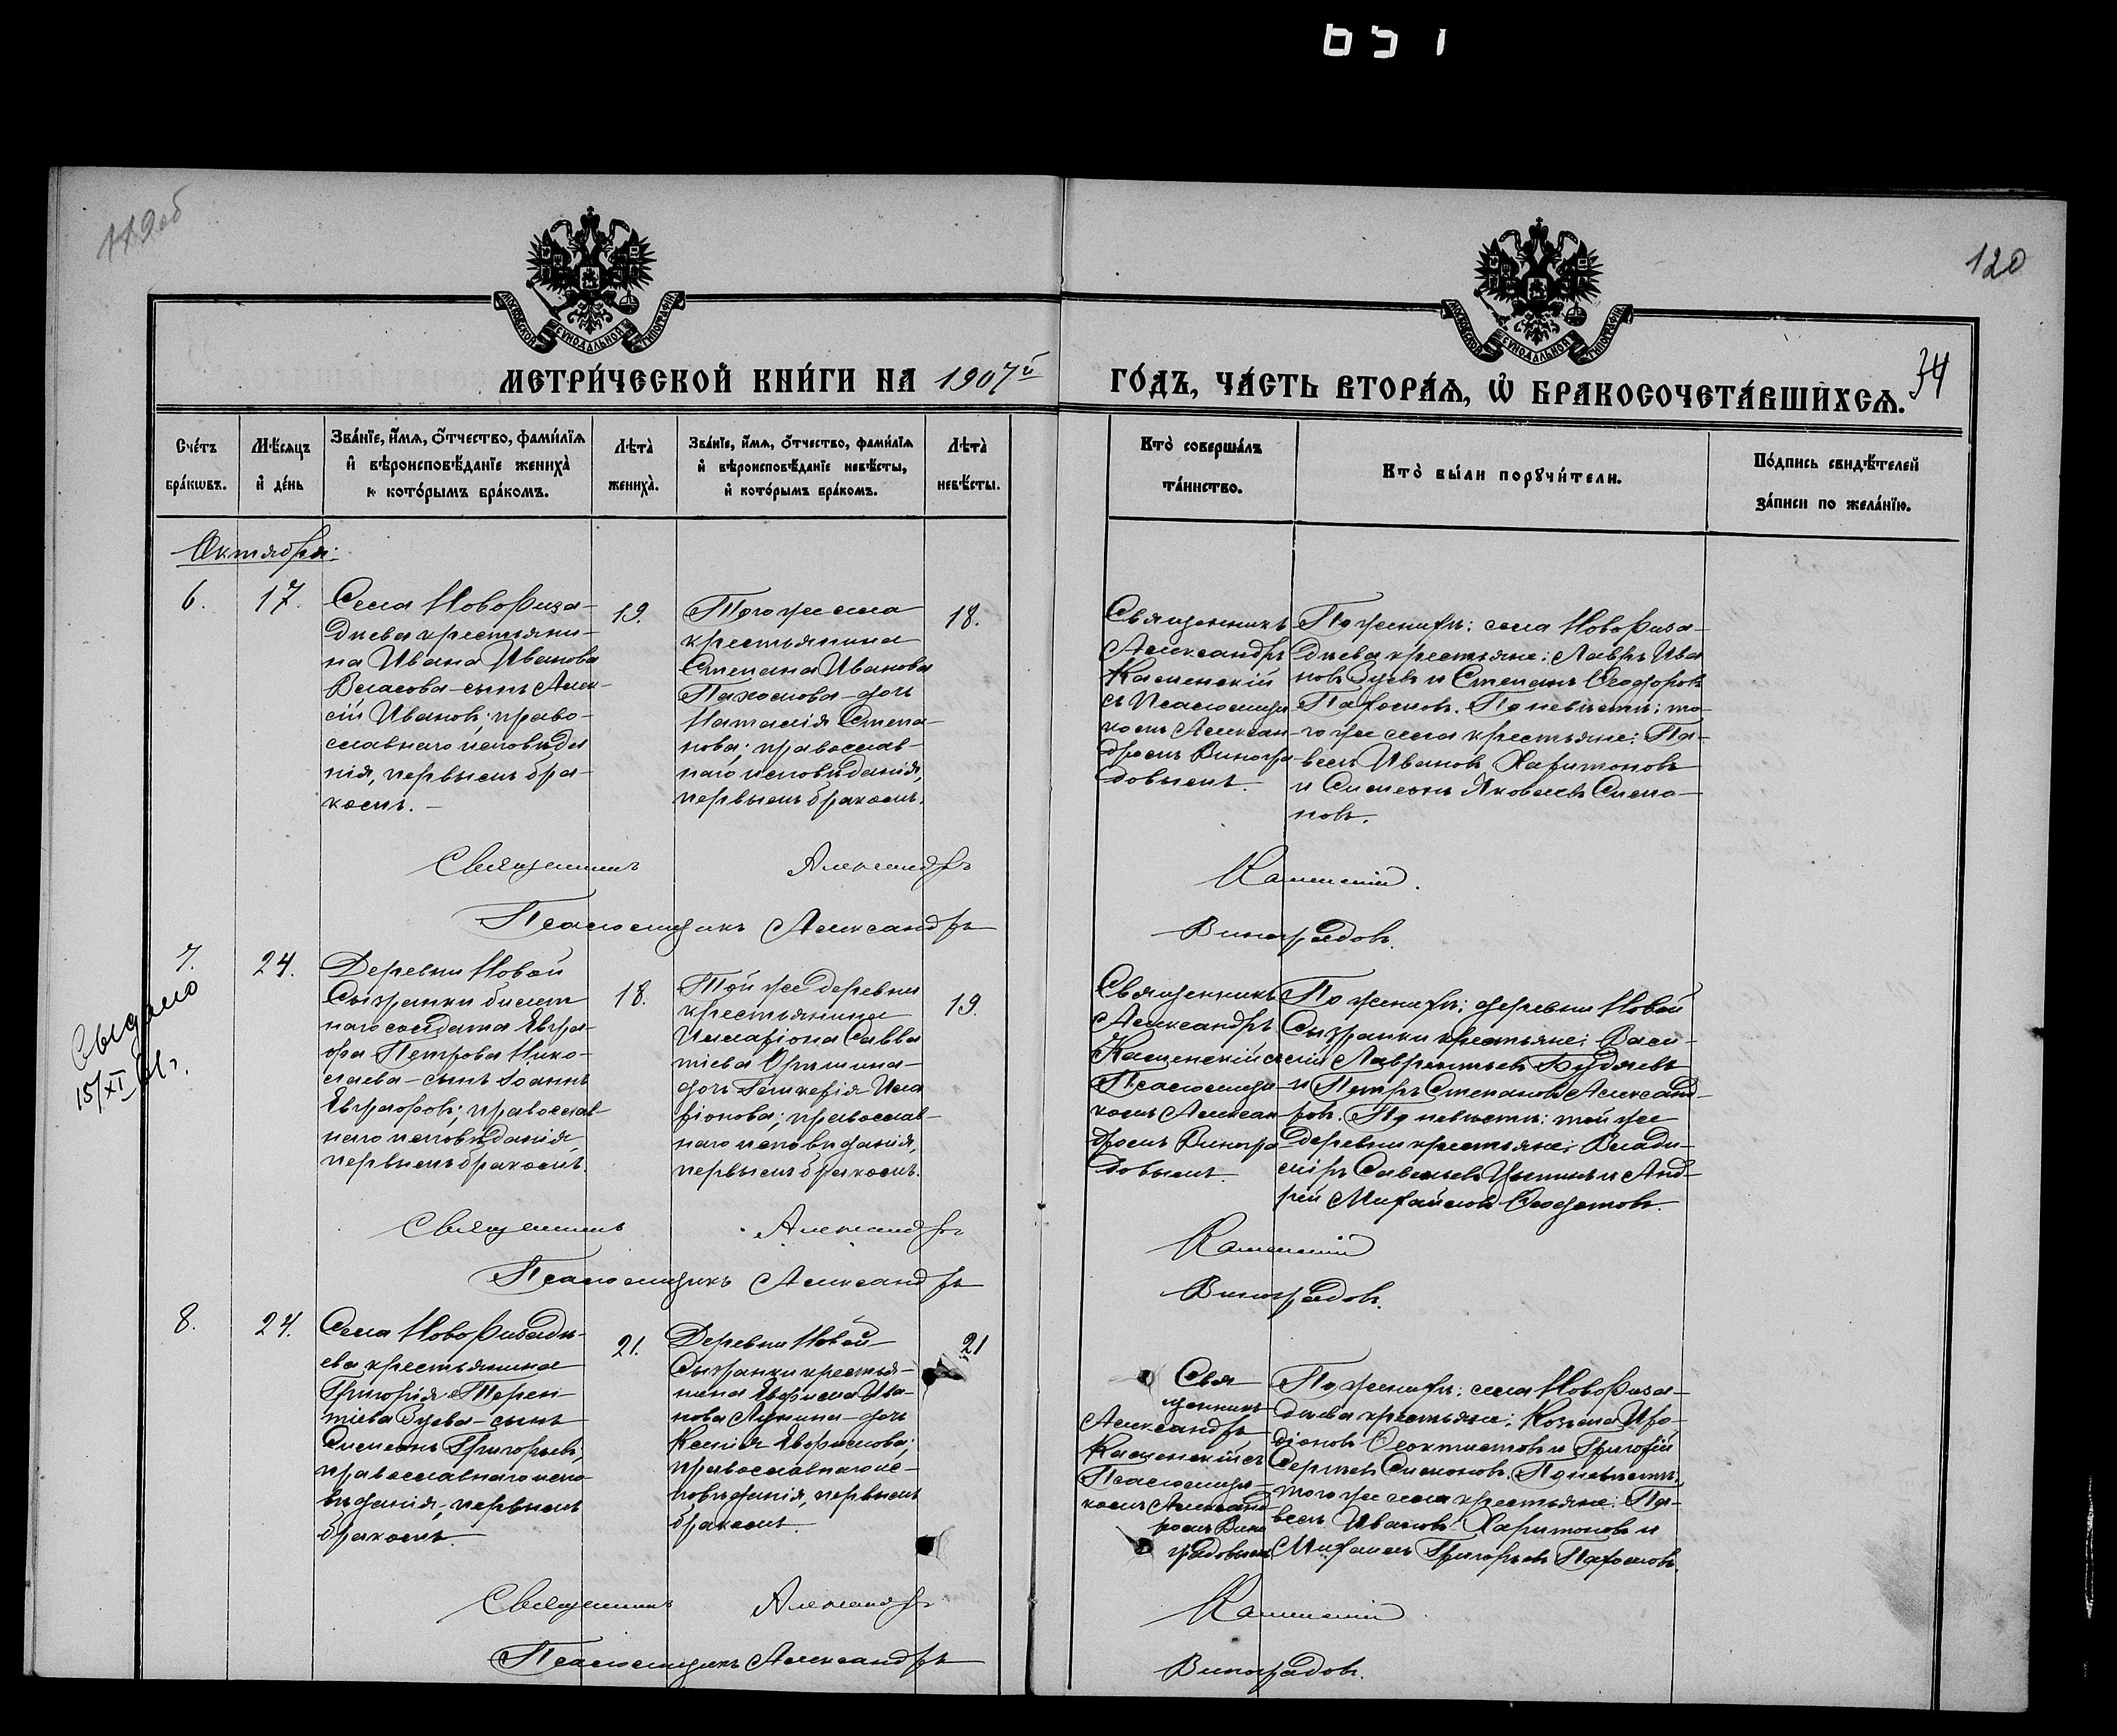 119об
120
МОСКОВСКОЙ СѴНОДАЛЬНОЙ ТИПОГРАФІИ
МОСКОВСКОЙ СѴНОДАЛЬНОЙ ТИПОГРАФІИ
МЕТРИ́ЧЕСКОЙ КНИ́ГИ НА 1907й ГО́ДЪ, ЧА́СТЬ ВТОРА́Я, Ѡ҆ БРАКОСОЧЕТА́ВШИХСЯ.
34
Сче́тъ бра́кѡвъ.
Мѣ́сяцъ и҆ де́нь
Зва́нїе, и҆́мя, ѻ҆́тчество, фами́лїя
и҆ вѣроисповѣ́данїе жениха̀
и҆ кото́рымъ бра́комъ.
Лѣта̀ жениха̀.
Зва́нїе, и҆́мя, ѻ҆́тчество, фами́лїя
и҆ вѣроисповѣ́данїе невѣ́сты,
и҆ кото́рымъ бра́комъ.
Лѣта̀ невѣ́сты.
Кто̀ соверша́лъ
та́инство.
Кто̀ бы́ли порꙋчи́тели.
По́дпись свидѣ́телей
за́писи по жела́нїю.
Октябрь:
6.
17.
Села Новоризад-
ѣева крестьяни-
на Ивана Иванова
Власова – сынъ Алек-
сій Ивановъ; право-
славнаго исповѣда
нія, первымъ бра-
комъ. –
19.
Того же села
крестьянина
Степана Иванова
Пахомова – дочь
Наталія Степа-
нова; православ-
наго исповѣданія,
первымъ бракомъ.
18.
Священникъ
Александръ
Каменскій
съ Псаломщи
комъ Алексан-
дромъ Виногра
довымъ.
По женихѣ: села Новориза-
дѣева крестьяне: Лавръ Ива
новъ Гуевъ и Степанъ Ѳеодоровъ
Пахомовъ. По невѣстѣ: то-
го же села крестьяне: Па-
велъ Ивановъ Харитоновъ
и Симеонъ Яковлевъ Симо-
новъ.
Священникъ Александръ Каменскій.
Псаломщикъ Александръ Виноградовъ.
7.
24.
Выдано
15/XI
Деревни Новой
Сызранки билет
наго солдата Евгра-
фа Петрова Нико-
лаева – сынъ Іоаннъ
Евграфовъ; православ
наго исповѣданія,
первымъ бракомъ.
18.
Той же деревни
крестьянина
Иларіона Савва
тіева
дочь Гликерія Ила
ріонова; православ-
наго исповѣданія,
первымъ бракомъ.
19.
Священникъ
Александръ
Каменскій съ
Псаломщи-
комъ Алексан
дромъ Виногра
довымъ.
По женихѣ: деревни Новой
Сызранки крестьяне: Васи-
лій Лаврентьевъ
и Петръ Степановъ Александ-
ровъ. По невѣстѣ: той же
деревни крестьяне: Влади-
міръ Савельевъ и Анд-
рей Михайловъ Ѳеодотовъ.
Священникъ Александръ Каменскій
Псаломщикъ Александръ Виноградовъ.
8.
24.
Села Новоризадѣ-
ева крестьянина
Григорія Терен-
тіева Гуева – сынъ
Симеонъ Григорьевъ;
православнаго испо-
вѣданія, первымъ
бракомъ.
21.
Деревни Новой
Сызранки крестья-
нина Евфима Ива-
нова – дочь
Ксенія Евфимова;
православнаго ис-
повѣданія, первымъ
бракомъ.
21
Свя-
щенникъ
Александръ
Каменскій съ
Псаломщи-
комъ Александ
ромъ Вино
градовымъ
По женихѣ: села Новориза-
дѣева крестьяне: Козьма Иро-
діоновъ Ѳеоктистовъ и Григорій
Сергѣевъ Симоновъ. По невѣстѣ:
того же села крестьяне: Па-
велъ Ивановъ Харитоновъ и
Михаилъ Григорьевъ Пахомовъ.
Священникъ Александръ Каменскій
Псаломщикъ Александръ Виноградовъ.